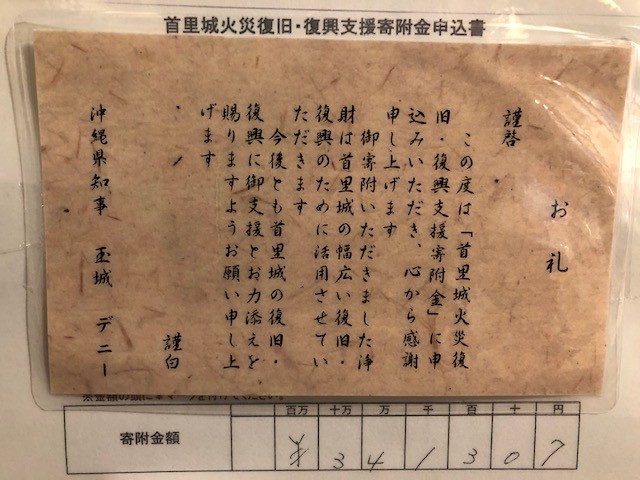 首里城火災復旧・復興支援寄附金申込書
お礼
謹啓
この度は「首里城火災復
旧・復興支援寄附金」に申
込みいただき、心から感謝
申し上げます
御寄附いただきました浄
財は首里城の幅広い復旧・
復興のために活用させてい
ただきます
今後とも首里城の復旧・
復興に御支援とお力添えを
賜りますようお願い申し上
げます
謹白
沖縄県知事 玉城 デニー
※金額の頭に¥マークを付けてください。
百万 十万 万 千 百 十 円
寄附金額 ¥ 3 4 1 3 0 7